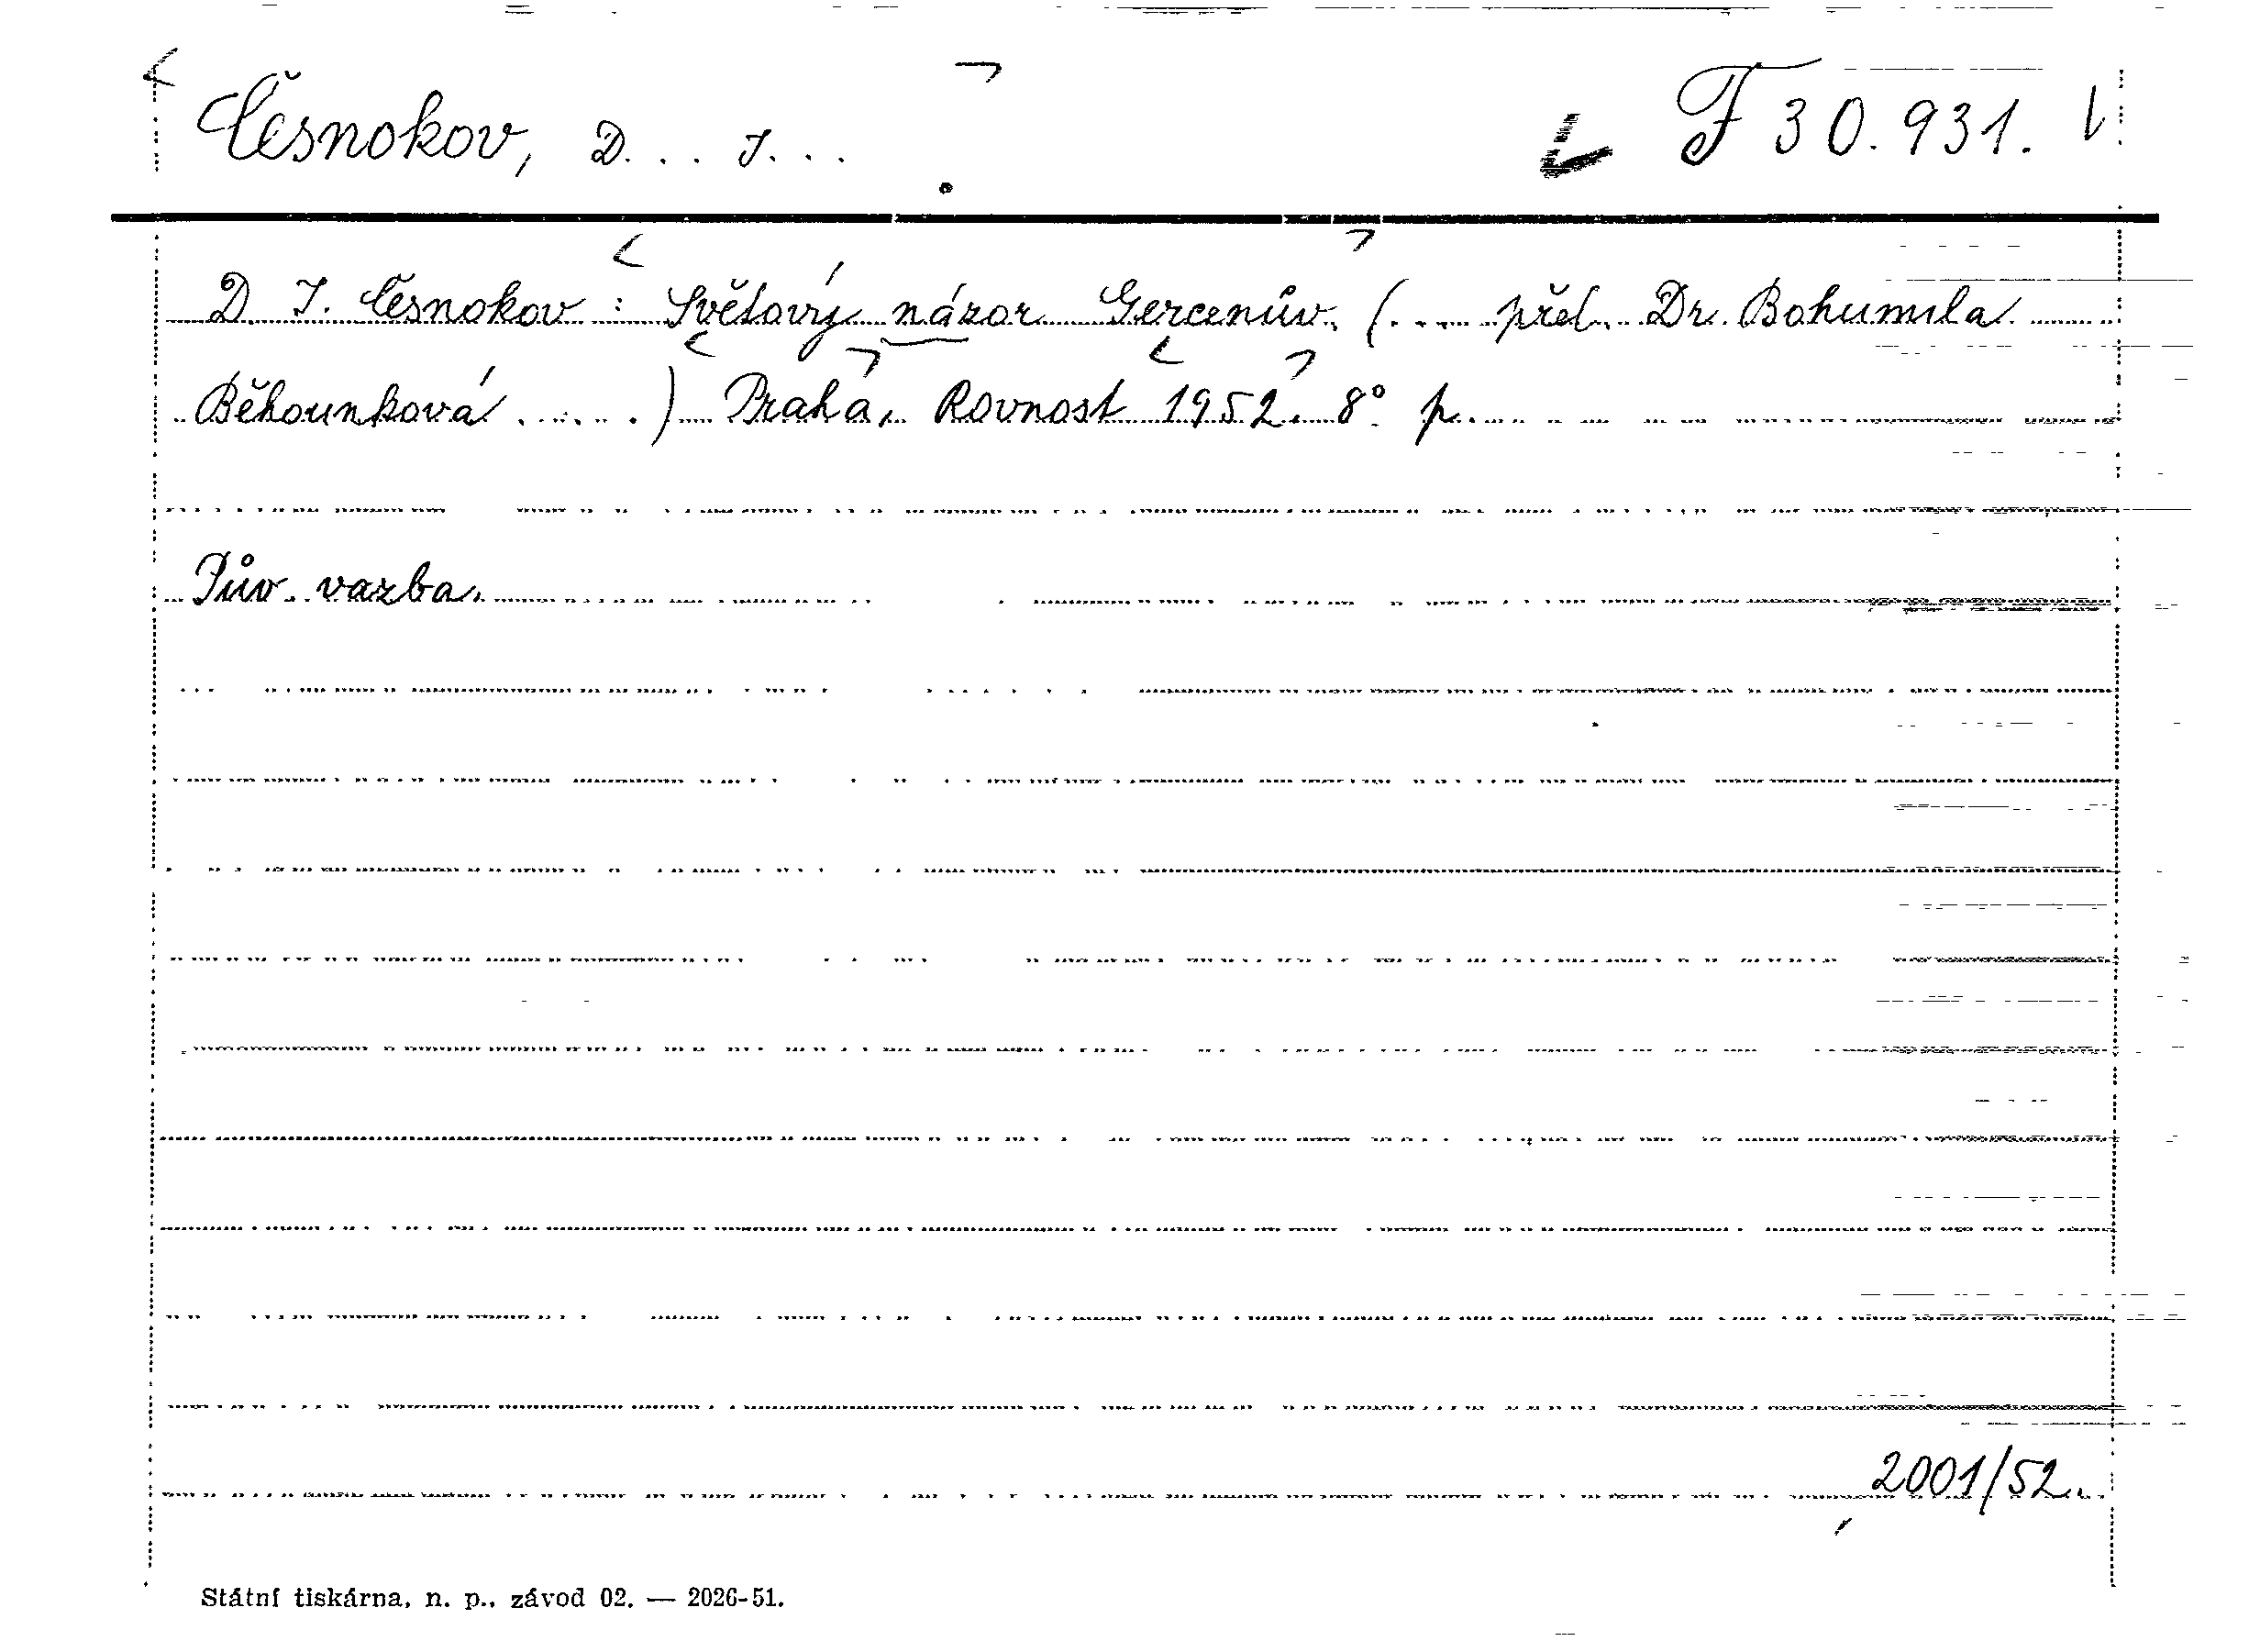 Česnokov, D. . . J. . . F 30.931.
D. J. Česnokov : Světový názor Gercenův. (. . . přel. Dr. Bohumila
Běhounková . . . . .) Praha, Rovnost 1952. 8° p.
Pův. vazba.
2001/52.
Státní tiskárna, n. p., závod 02. — 2026-51.